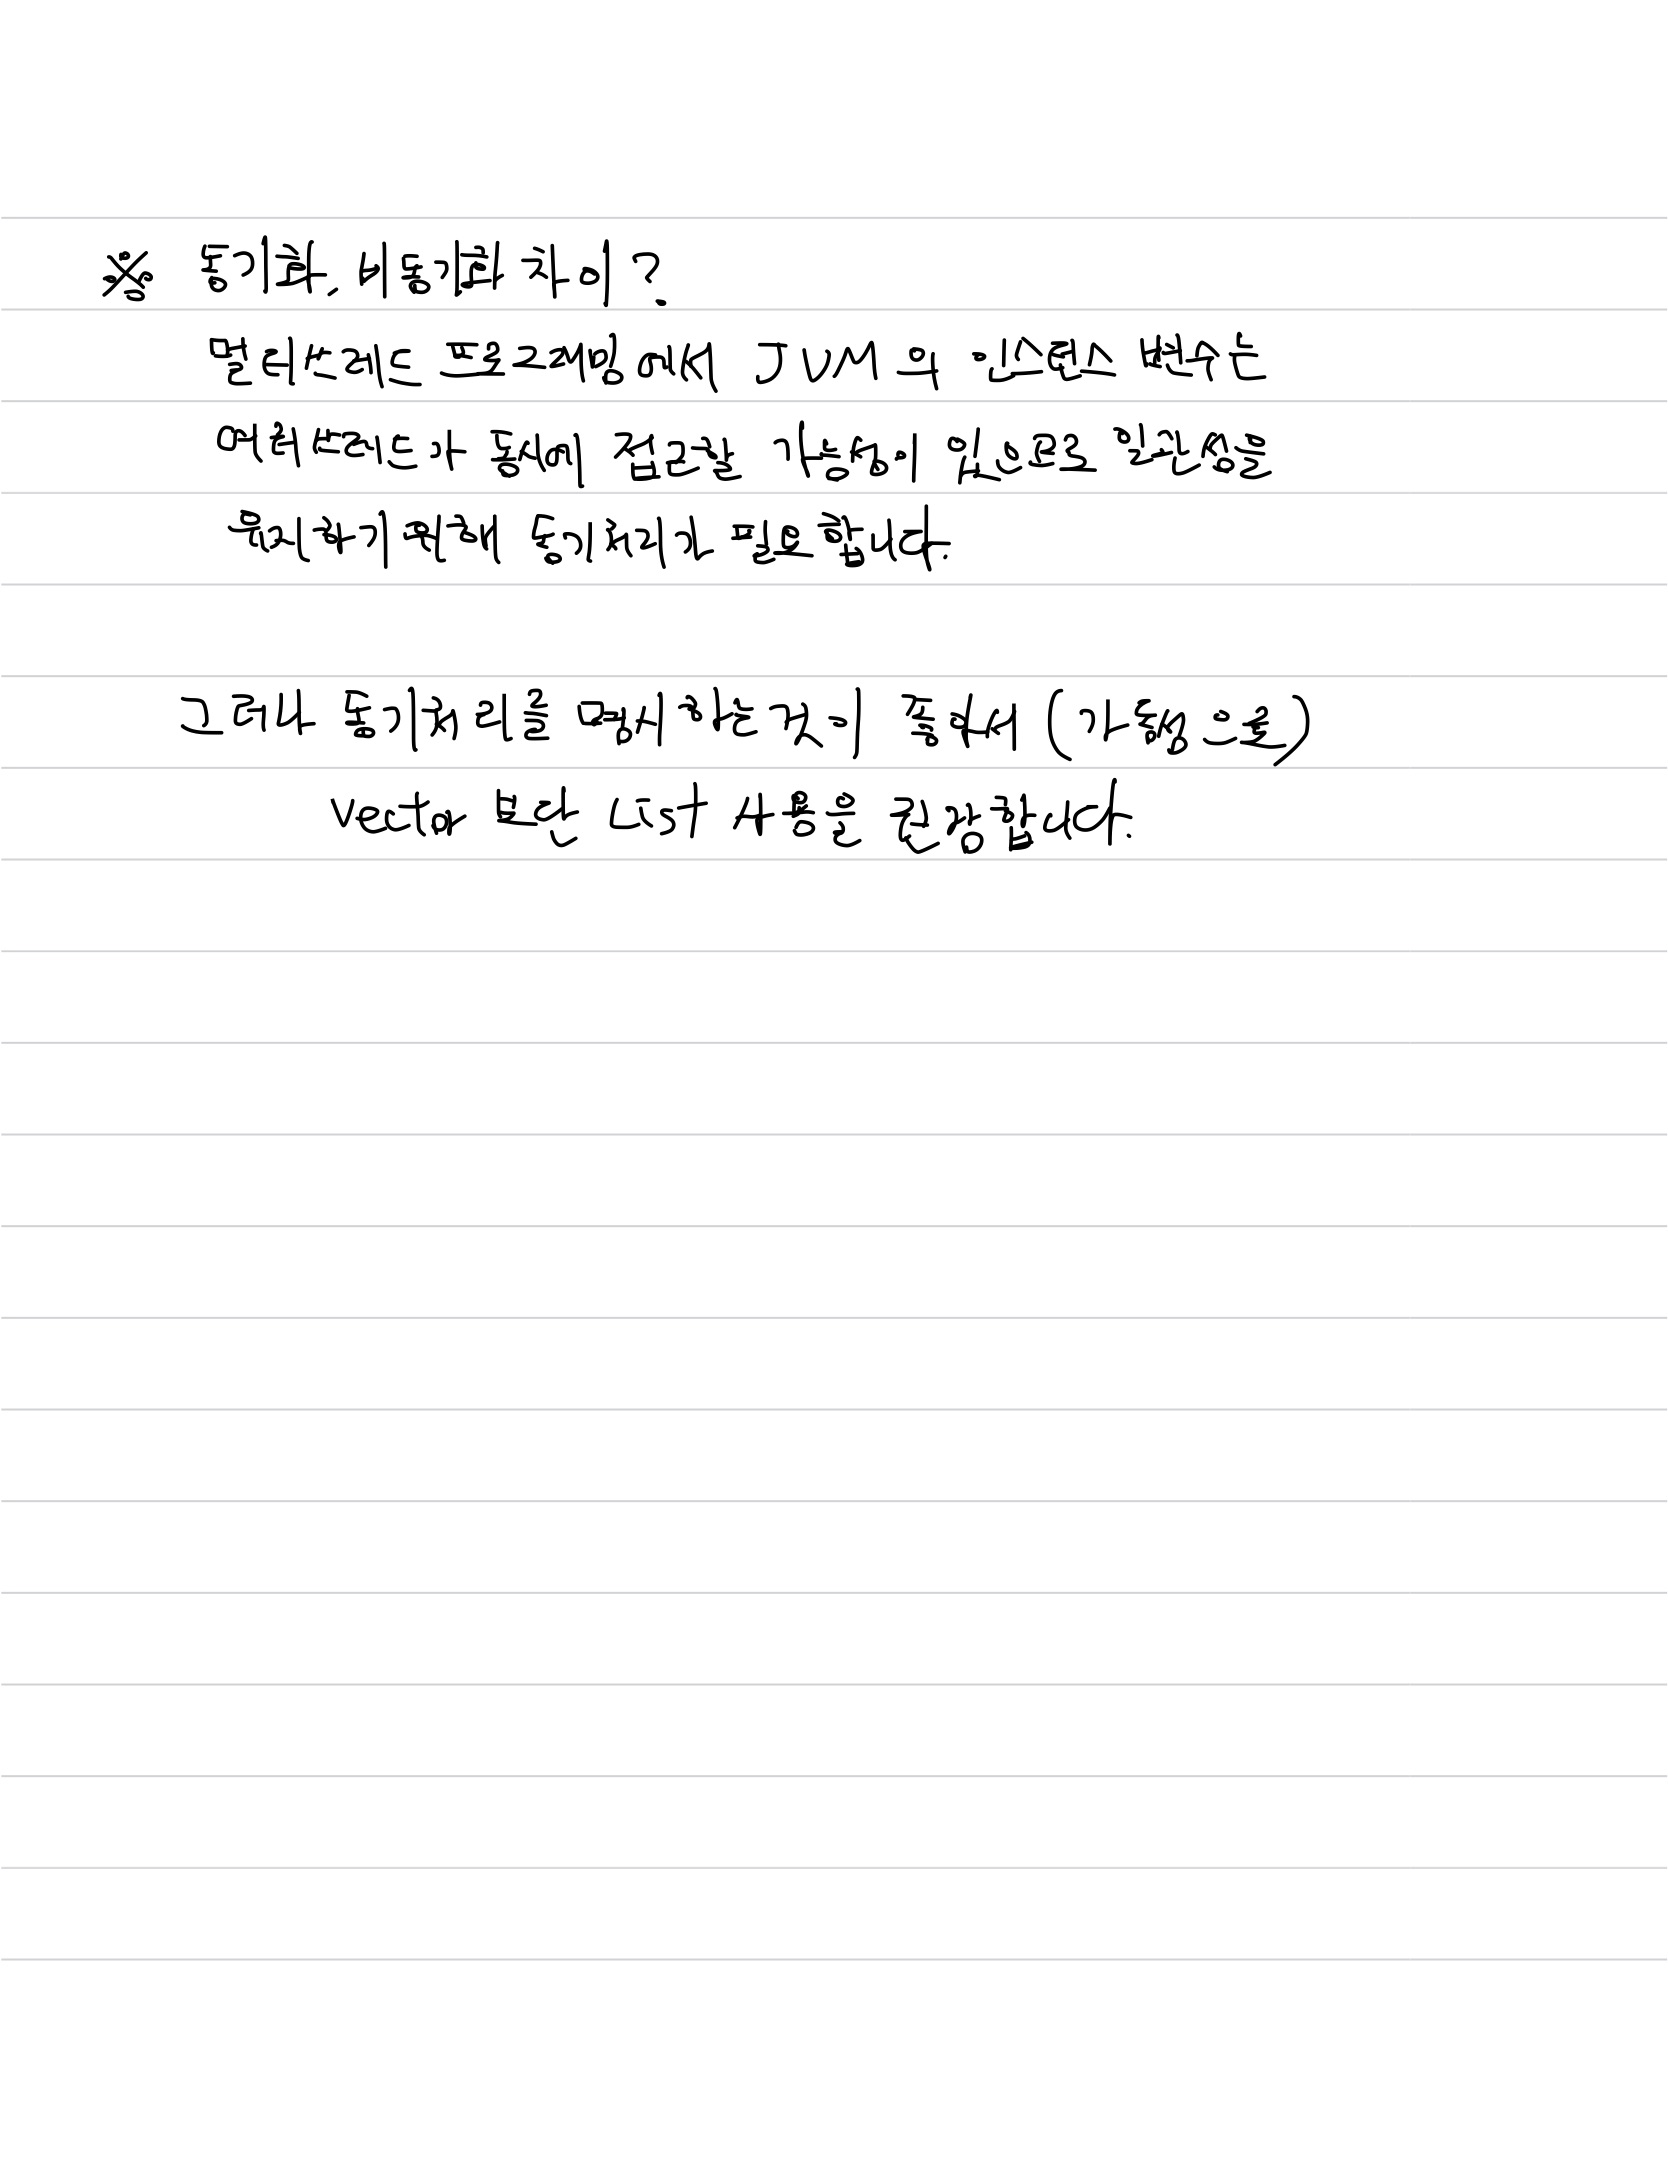 ※ 동기화, 비동기화 차이?
멀티쓰레드 프로그래밍에서 JVM의 인스턴스 변수는
여러쓰레드가 동시에 접근할 가능성이 있으므로 일관성을
유지하기 위해 동기처리가 필요합니다.
그러나 동기처리를 명시하는것이 좋아서 (가동성으로)
Vector 보단 List 사용을 권장합니다.